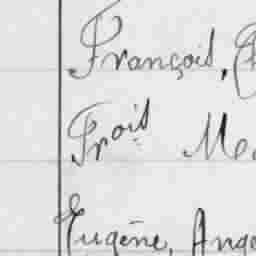 François,
Frois
Eugène, Ange